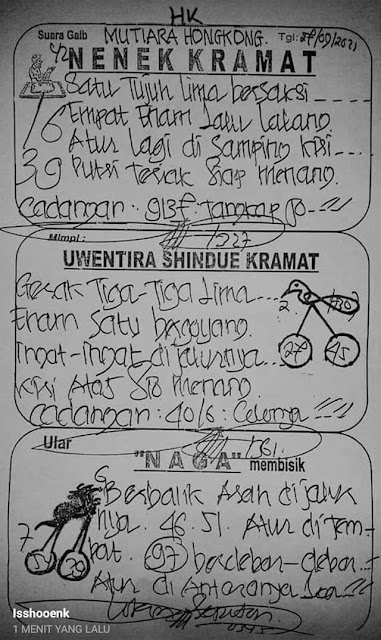 HK
Suara Gaib MUTIARA HONGKONG. Tgl: /09/2021
NENEK KRAMAT
Satu Tujuh Lima bersaksi
Empat Enam Lalu Lalang
Atur Lagi di samping kisi
Putri Tegak siap menang.
16
39
Cadangan :
Mimpi :
1327
UWENTIRA SHINDUE KRAMAT
Gerak Tiga-Tiga Lima
Enam Satu bergoyang.
Ingat-ingat di jalurnya
Kisi Atas menang.
2
27 45
Cadangan : 40/6 :
Ular
1561
"NAGA" membisik
6
Berbalik Arah di jaluk
nya. 46. 51. Atur di tem-
pat. 97 berdebar-debar
Atur di Antaranya
7
39
Isshooenk
1 MENIT YANG LALU